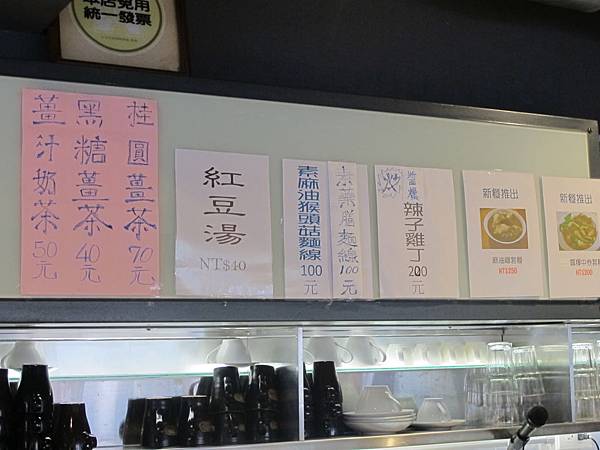 本店免用
統一發票
桂圓薑茶 70元
黑糖薑茶 40元
薑汁奶茶 50元
紅豆湯
NT$40
素麻油猴頭菇麵線 100元
素藥膳麵線 100元
辣子雞丁 200元
新種推出
麻油雞煲麵
NT$250
新種推出
NT$200